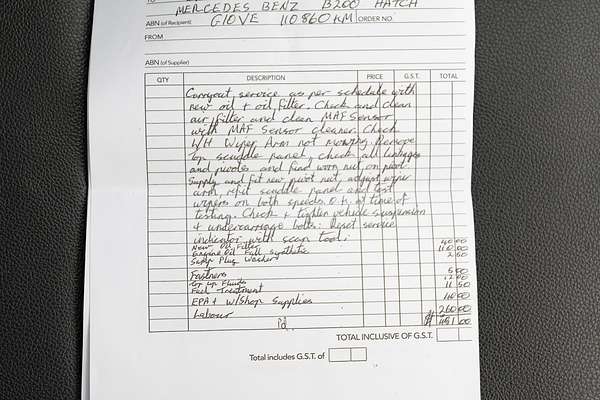 TO MERCEDES BENZ B200 HATCH
ABN (of Recipient) GIOVE 110860 KM ORDER NO.
FROM
ABN (of Supplier)
QTY DESCRIPTION PRICE G.S.T. TOTAL
Carryout service as per schedule with
new oil + oil filter. Check and clean
air filter and clean MAF Sensor
with MAF Sensor cleaner. Check
L/H Wiper Arm not moving. Remove
top scuddle panel, check all linkages
and pivots and find worn nut on post.
Supply and fit new pivot nut, adjust wiper
arm, refit scuddle panel and test
wipers on both speeds. o.k. at time of
testing. Check + tighten vehicle suspension
+ undercarriage bolts. Reset service
indicator with scan tool.
New Oil Filter 40 00
Engine Oil Full Synthetic 110 00
Sump Plug Washer 2 50
Fastners 5 00
Top up Fluids 12 00
Fuel Treatment 11 50
EPA + W/Shop Supplies
Labour 260 00
Pd. $ 481 00
TOTAL INCLUSIVE OF G.S.T.
Total includes G.S.T. of